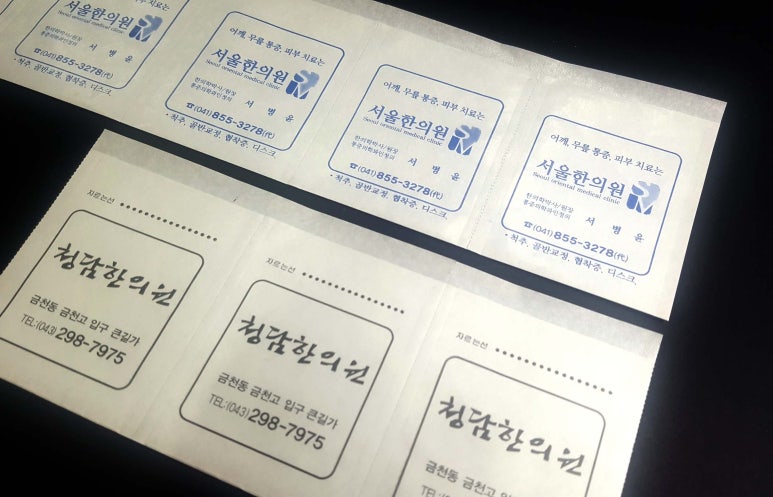 료는
서울한의원
Seoul oriental medical clinic
한의학박사/원장
통증의학과인정의
서 병 윤
☎(041)855-3278(代)
• 척추, 골반교정, 협착증, 디스크.
어깨, 무릎 통증, 피부 치료는
서울한의원
Seoul oriental medical clinic
한의학박사/원장
통증의학과인정의
서 병 윤
☎(041)855-3278(代)
• 척추, 골반교정, 협착증, 디스크.
어깨, 무릎 통증, 피부 치료는
서울한의원
Seoul oriental medical clinic
한의학박사/원장
통증의학과인정의
서 병 윤
☎(041)855-3278(代)
• 척추, 골반교정, 협착증, 디스크.
어깨, 무릎 통증, 피부 치료는
서울한의원
Seoul oriental medical clinic
한의학박사/원장
통증의학과인정의
서 병 윤
☎(041)855-3278(代)
• 척추, 골반교정, 협착증, 디스크.
자르는선
청담한의원
금천동 금천고 입구 큰길가
TEL:(043)298-7975
자르는선
청담한의원
금천동 금천고 입구 큰길가
TEL:(043)298-7975
자르는선
청담한의원
금천동 금천고 입구 큰길가
TEL:(04